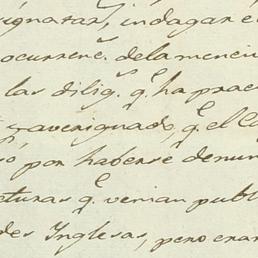 signatar, indagar e
ocurrenc.s dela menci
las dilig.s q.e ha prac
averiguado, q.e el Ca
so, por haberse denun
cturas q.e venian publ
des Inglesas, pero eran